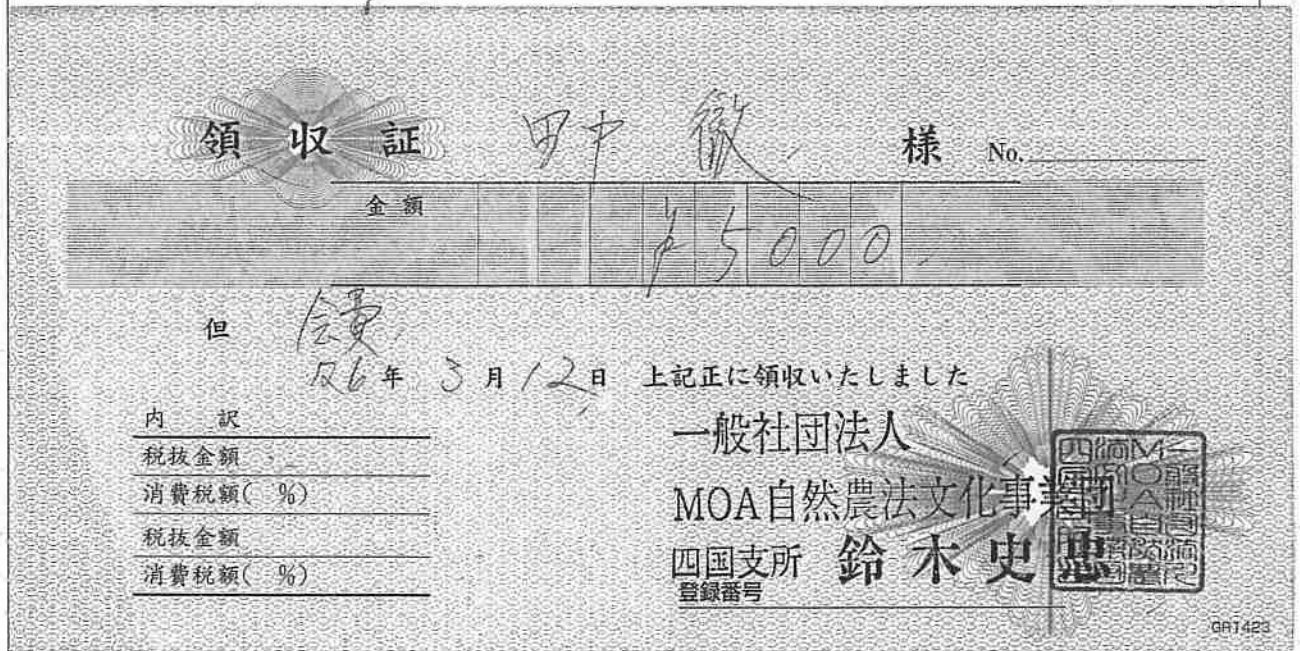 領収証 田中 徹 様 No.
金額 ¥5000
但 会費
R6年 3月12日 上記正に領収いたしました
内訳
税抜金額
消費税額( %)
税抜金額
消費税額( %)
一般社団法人
MOA自然農法文化事業団
四国支所 鈴木史忠
登録番号
GR1423